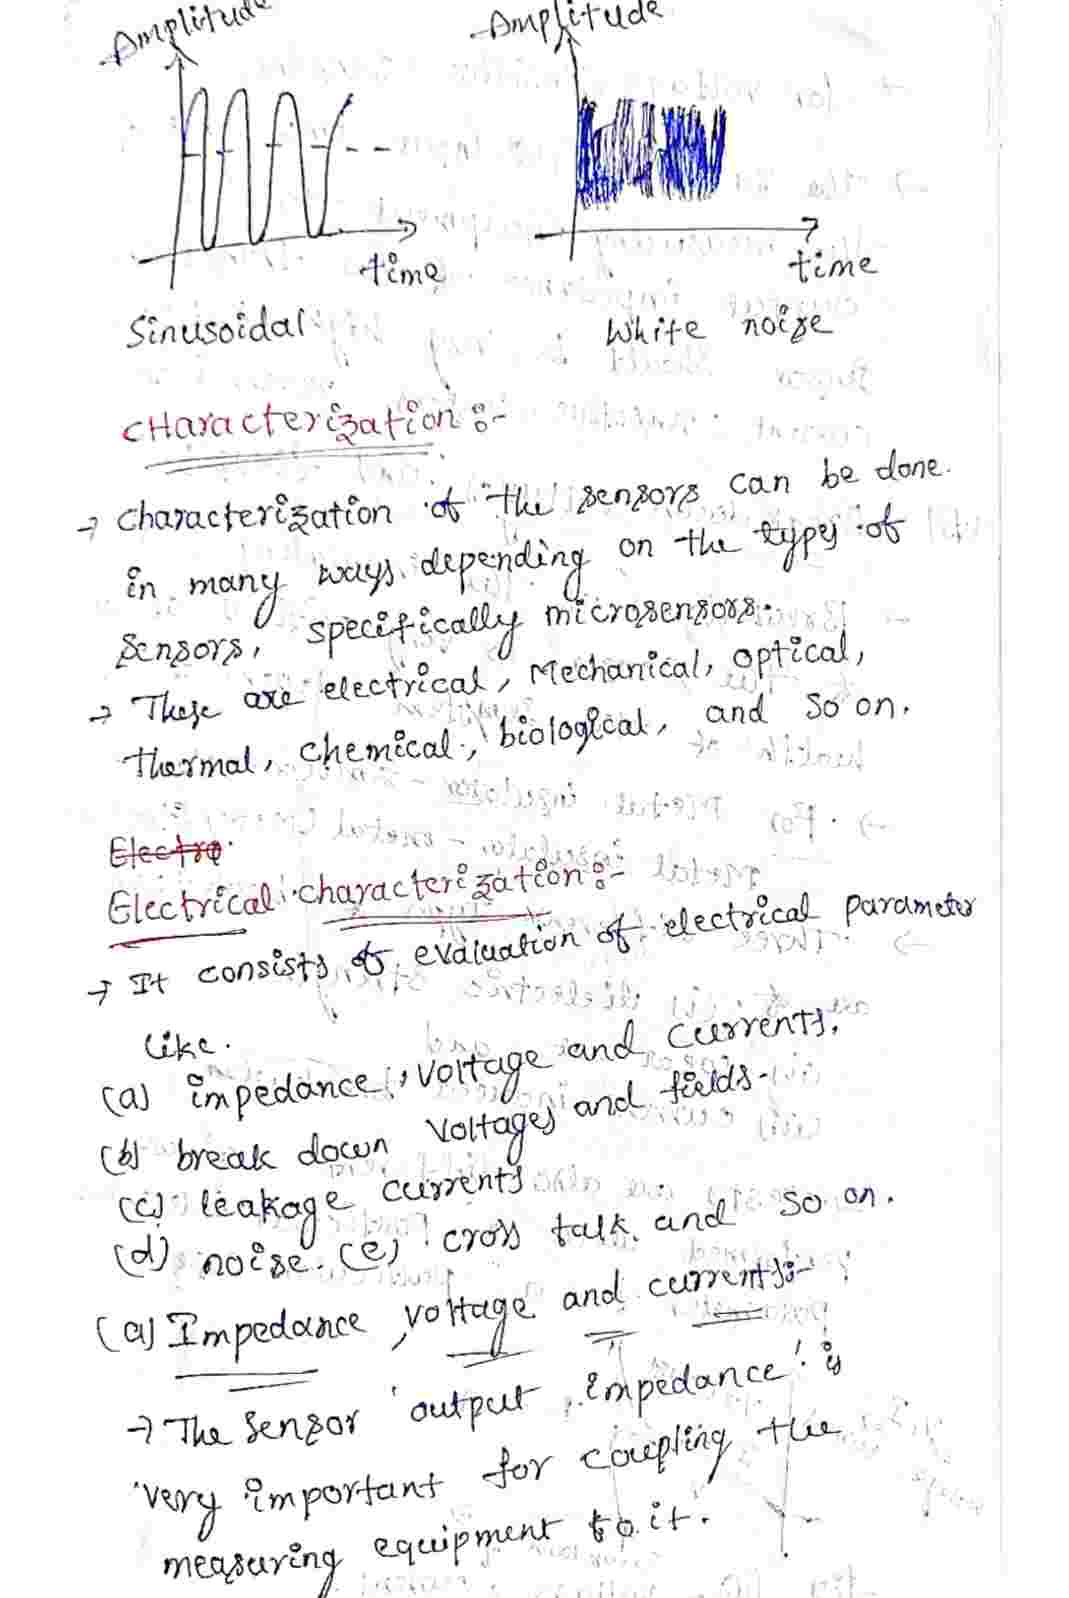 Amplitude Amplitude
time time
Sinusoidal White noise
Characterization :-
→ Characterization of the sensors can be done.
in many ways depending on the types of
sensors, specifically microsensors.
→ These are electrical, Mechanical, optical,
thermal, chemical, biological, and so on.
Electro
Electrical characterization :-
→ It consists of evaluation of electrical parameter
like.
(a) impedance, voltage and currents.
(b) break down voltages and fields.
(c) leakage currents
(d) noise. (e) cross talk. and so on.
(a) Impedance, voltage and currents:-
→ The sensor output impedance is
very important for coupling the
measuring equipment to it.